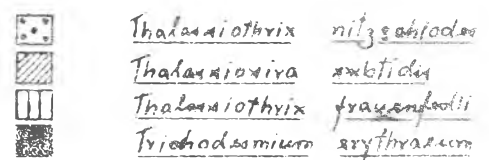 Thalassiothrix nitzschiodes
Thalassiosira subtidis
Thalassiothrix frauenfeldii
Trichodesmium erythraeum